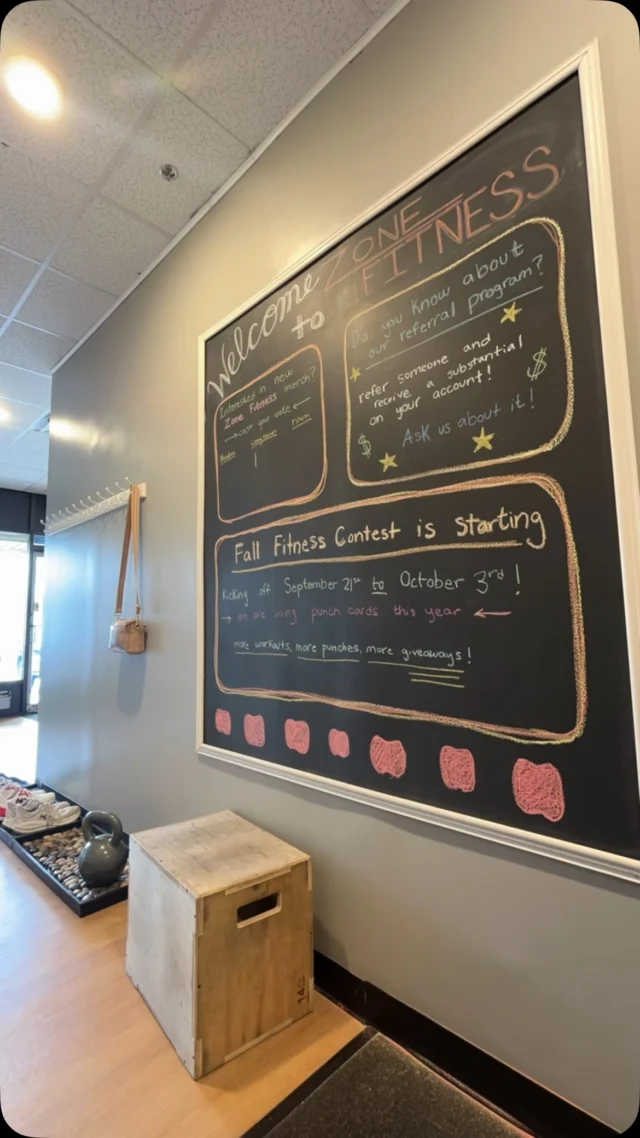 Welcome
to
ZONE
FITNESS
Interested in new
Zone Fitness merch?
→ cast your vote ←
Do you know about
our referral program?
refer someone and
receive a substantial $
on your account!
$ Ask us about it!
Fall Fitness Contest is starting
Kicking off September 21st to October 3rd!
→ we are using punch cards this year ←
more workouts, more punches, more giveaways!